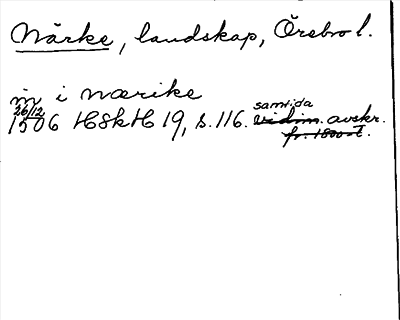 Närke, landskap, Örebro l.
in i nærike
26/12 samtida
1506 HSkH 19, s. 116. vidim. avskr.
fr. 1800-t.